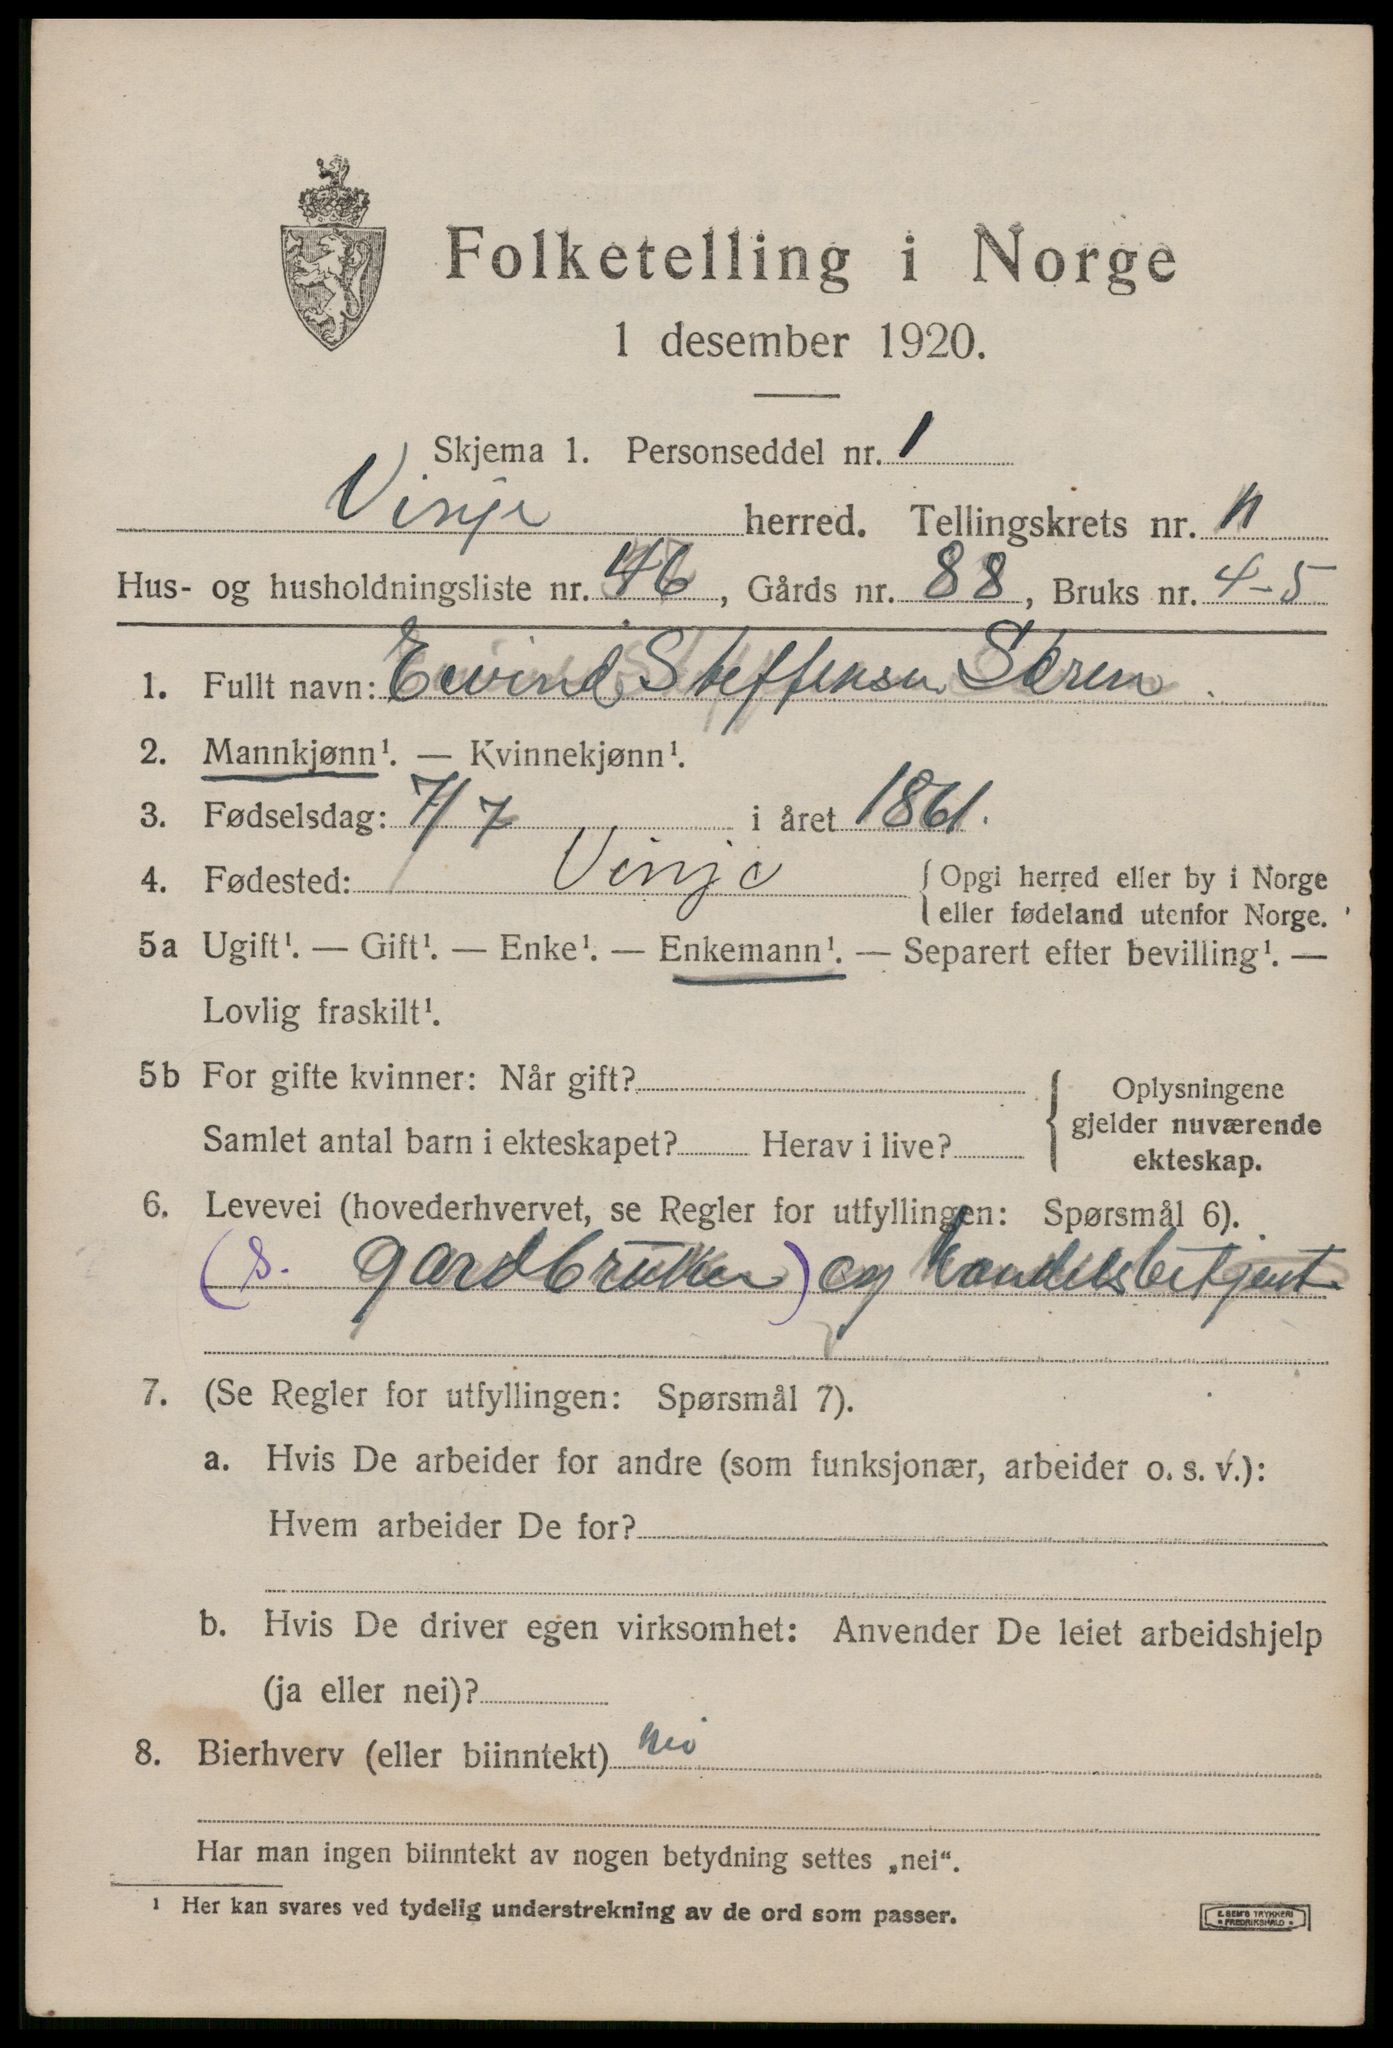 Folketelling i Norge
1 desember 1920.
Skjema 1. Personseddel nr. 1
Vinje herred. Tellingskrets nr. 11
Hus- og husholdningsliste nr. 46, Gårds nr. 88, Bruks nr. 4-5
1. Fullt navn: Eivind Steffensen
2. Mannkjønn¹. — Kvinnekjønn¹.
3. Fødselsdag: 7/7 i året 1861.
4. Fødested: Vinje { Opgi herred eller by i Norge
eller fødeland utenfor Norge.
5a Ugift¹. — Gift¹. — Enke¹. — Enkemann¹. — Separert efter bevilling¹. —
Lovlig fraskilt¹.
5b For gifte kvinner: Når gift?
Samlet antal barn i ekteskapet? Herav i live?
{ Oplysningene
gjelder nuværende
ekteskap.
6. Levevei (hovederhvervet, se Regler for utfyllingen: Spørsmål 6).
(s. gardbruker) og handelsbetjent
7. (Se Regler for utfyllingen: Spørsmål 7).
a. Hvis De arbeider for andre (som funksjonær, arbeider o. s. v.):
Hvem arbeider De for?
b. Hvis De driver egen virksomhet: Anvender De leiet arbeidshjelp
(ja eller nei)?
8. Bierhverv (eller biinntekt) nei
Har man ingen biinntekt av nogen betydning settes „nei“.
¹ Her kan svares ved tydelig understrekning av de ord som passer.
E. SEM'S TRYKKERI
• FREDRIKSHALD •